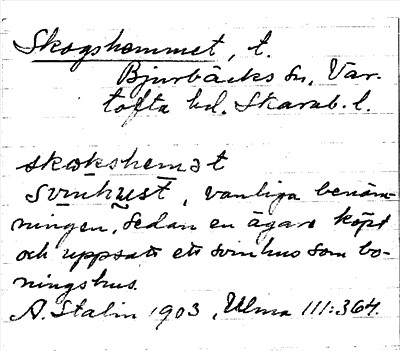 Skogshemmet, t.
Bjurbäcks sn, Var-
tofta hd. Skarab. l.
skokshemət
svinhust, vanliga benäm-
ningen, sedan en ägare köpt
och uppsatt ett svinhus som bo-
ningshus.
A. Stalin 1903, Ulma 111:364.